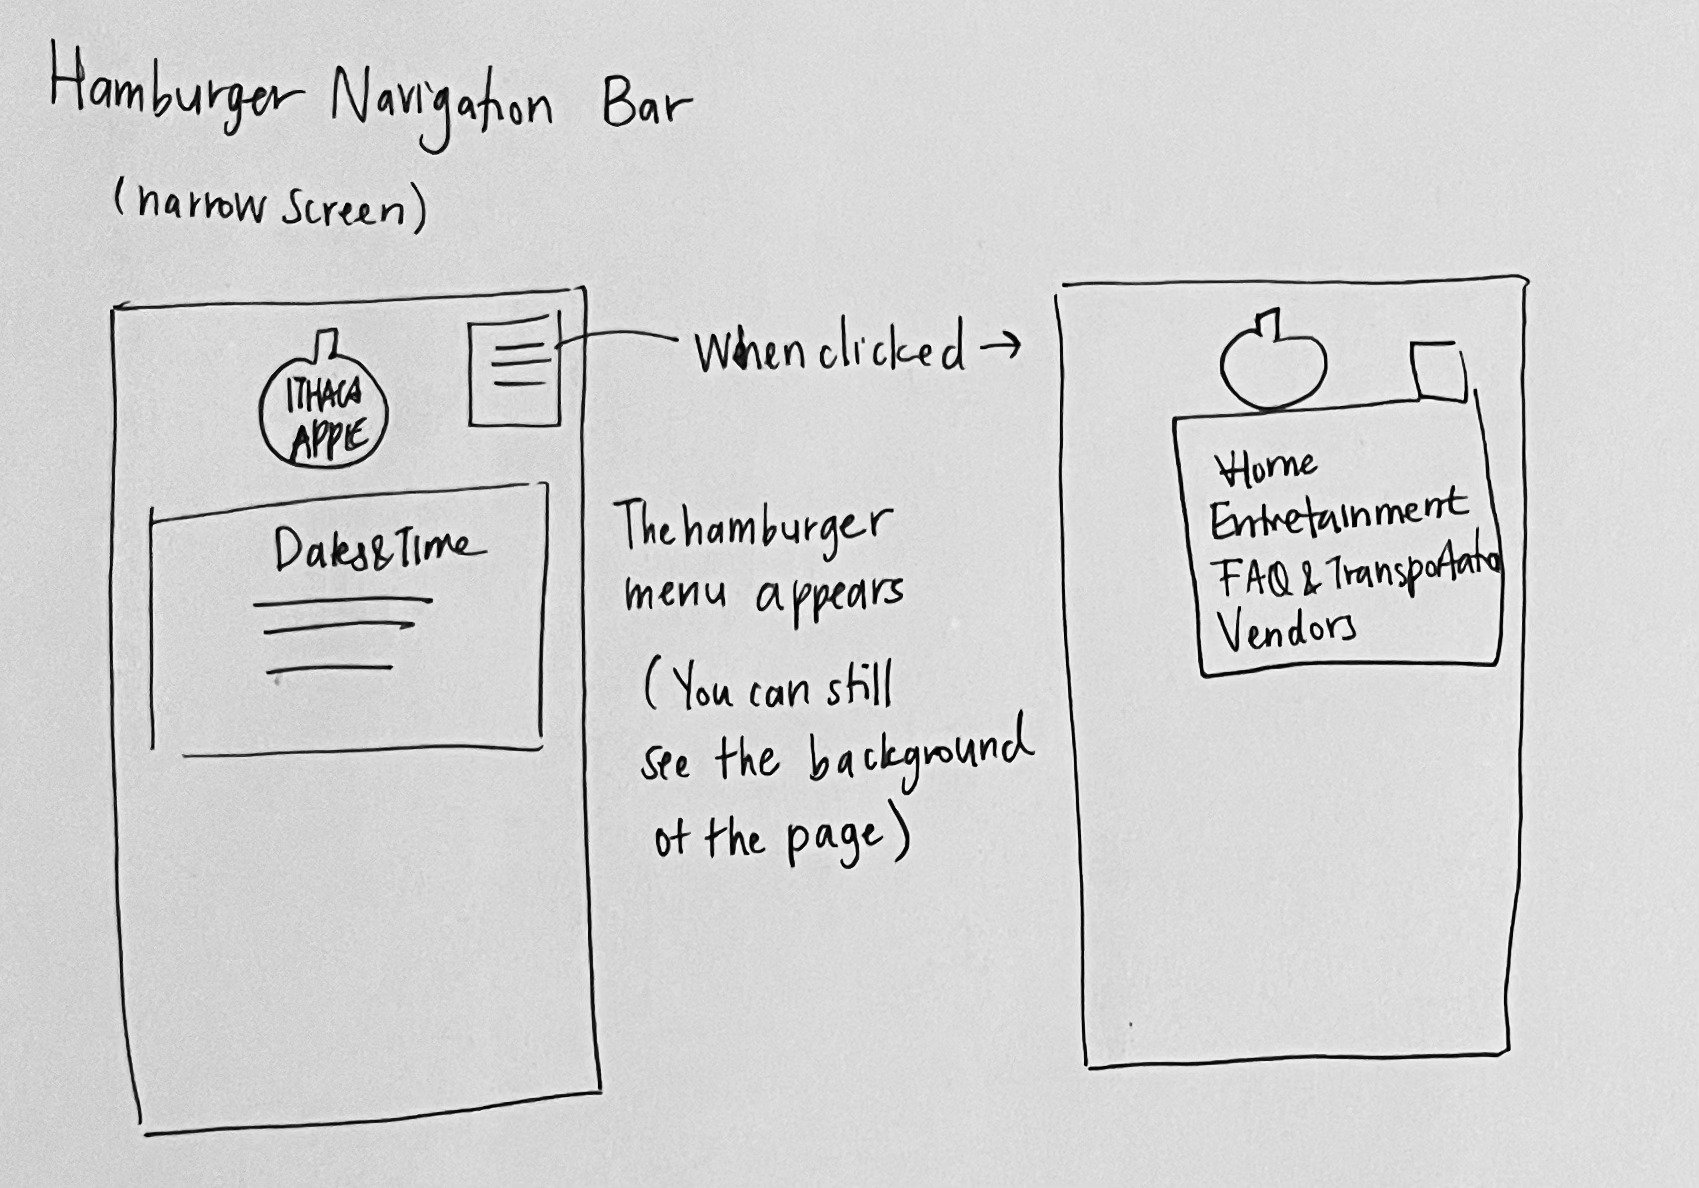 Hamburger Navigation Bar
(narrow screen)
ITHACA
APPLE
Dates&Time
When clicked →
The hamburger
menu appears
(You can still
see the background
of the page)
Home
Entretainment
FAQ & Transportatio
Vendors